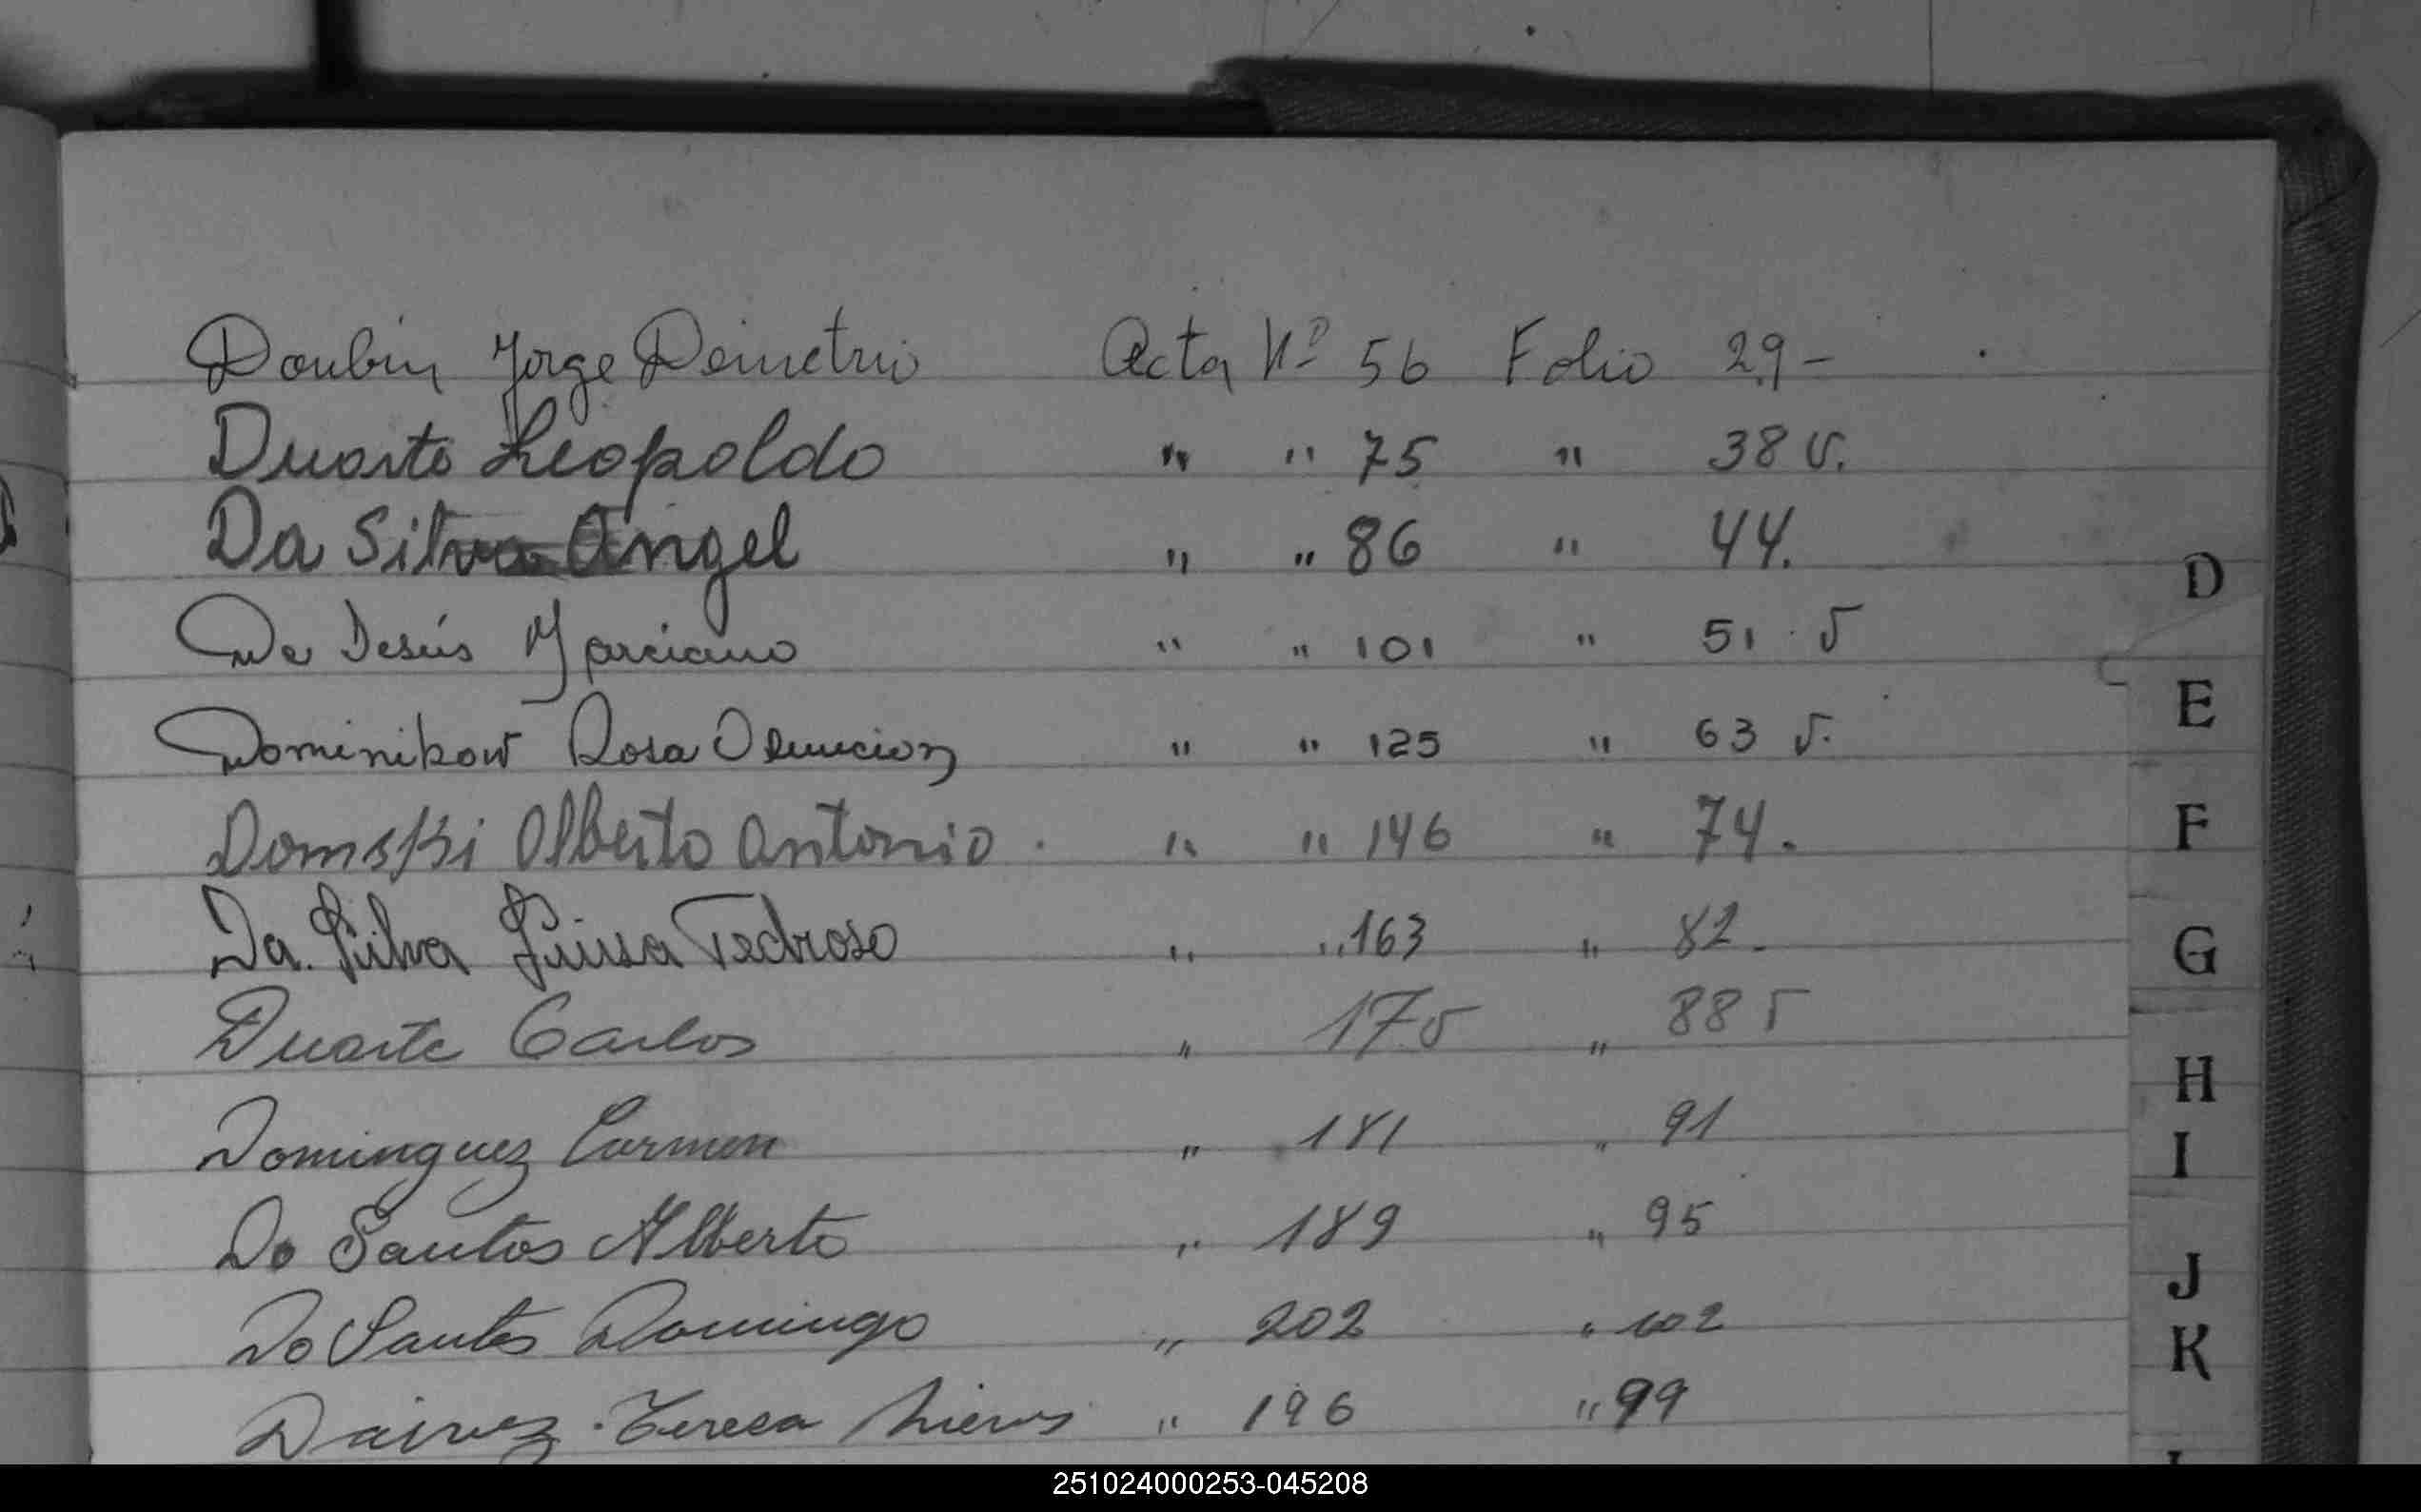 Doubin Jorge Demetrio Acta Nº 56 Folio 29-
Duarte Leopoldo " " 75 " 38 v.
Da Silva Angel " " 86 " 44.
De Jesús Marciano " " 101 " 51 v
Dominikow Rosa Asuncion " " 125 " 63 v.
Domski Alberto Antonio " " 146 " 74.
Da Silva Luisa Pedroso " " 163 " 82.
Duarte Carlos " 175 " 88 v
Dominguez Carmen " 181 " 91
Do Santos Alberto " 189 " 95
Do Santos Domingo " 202 " 102
Teresa " 196 " 99
D
E
F
G
H
I
J
K
251024000253-045208